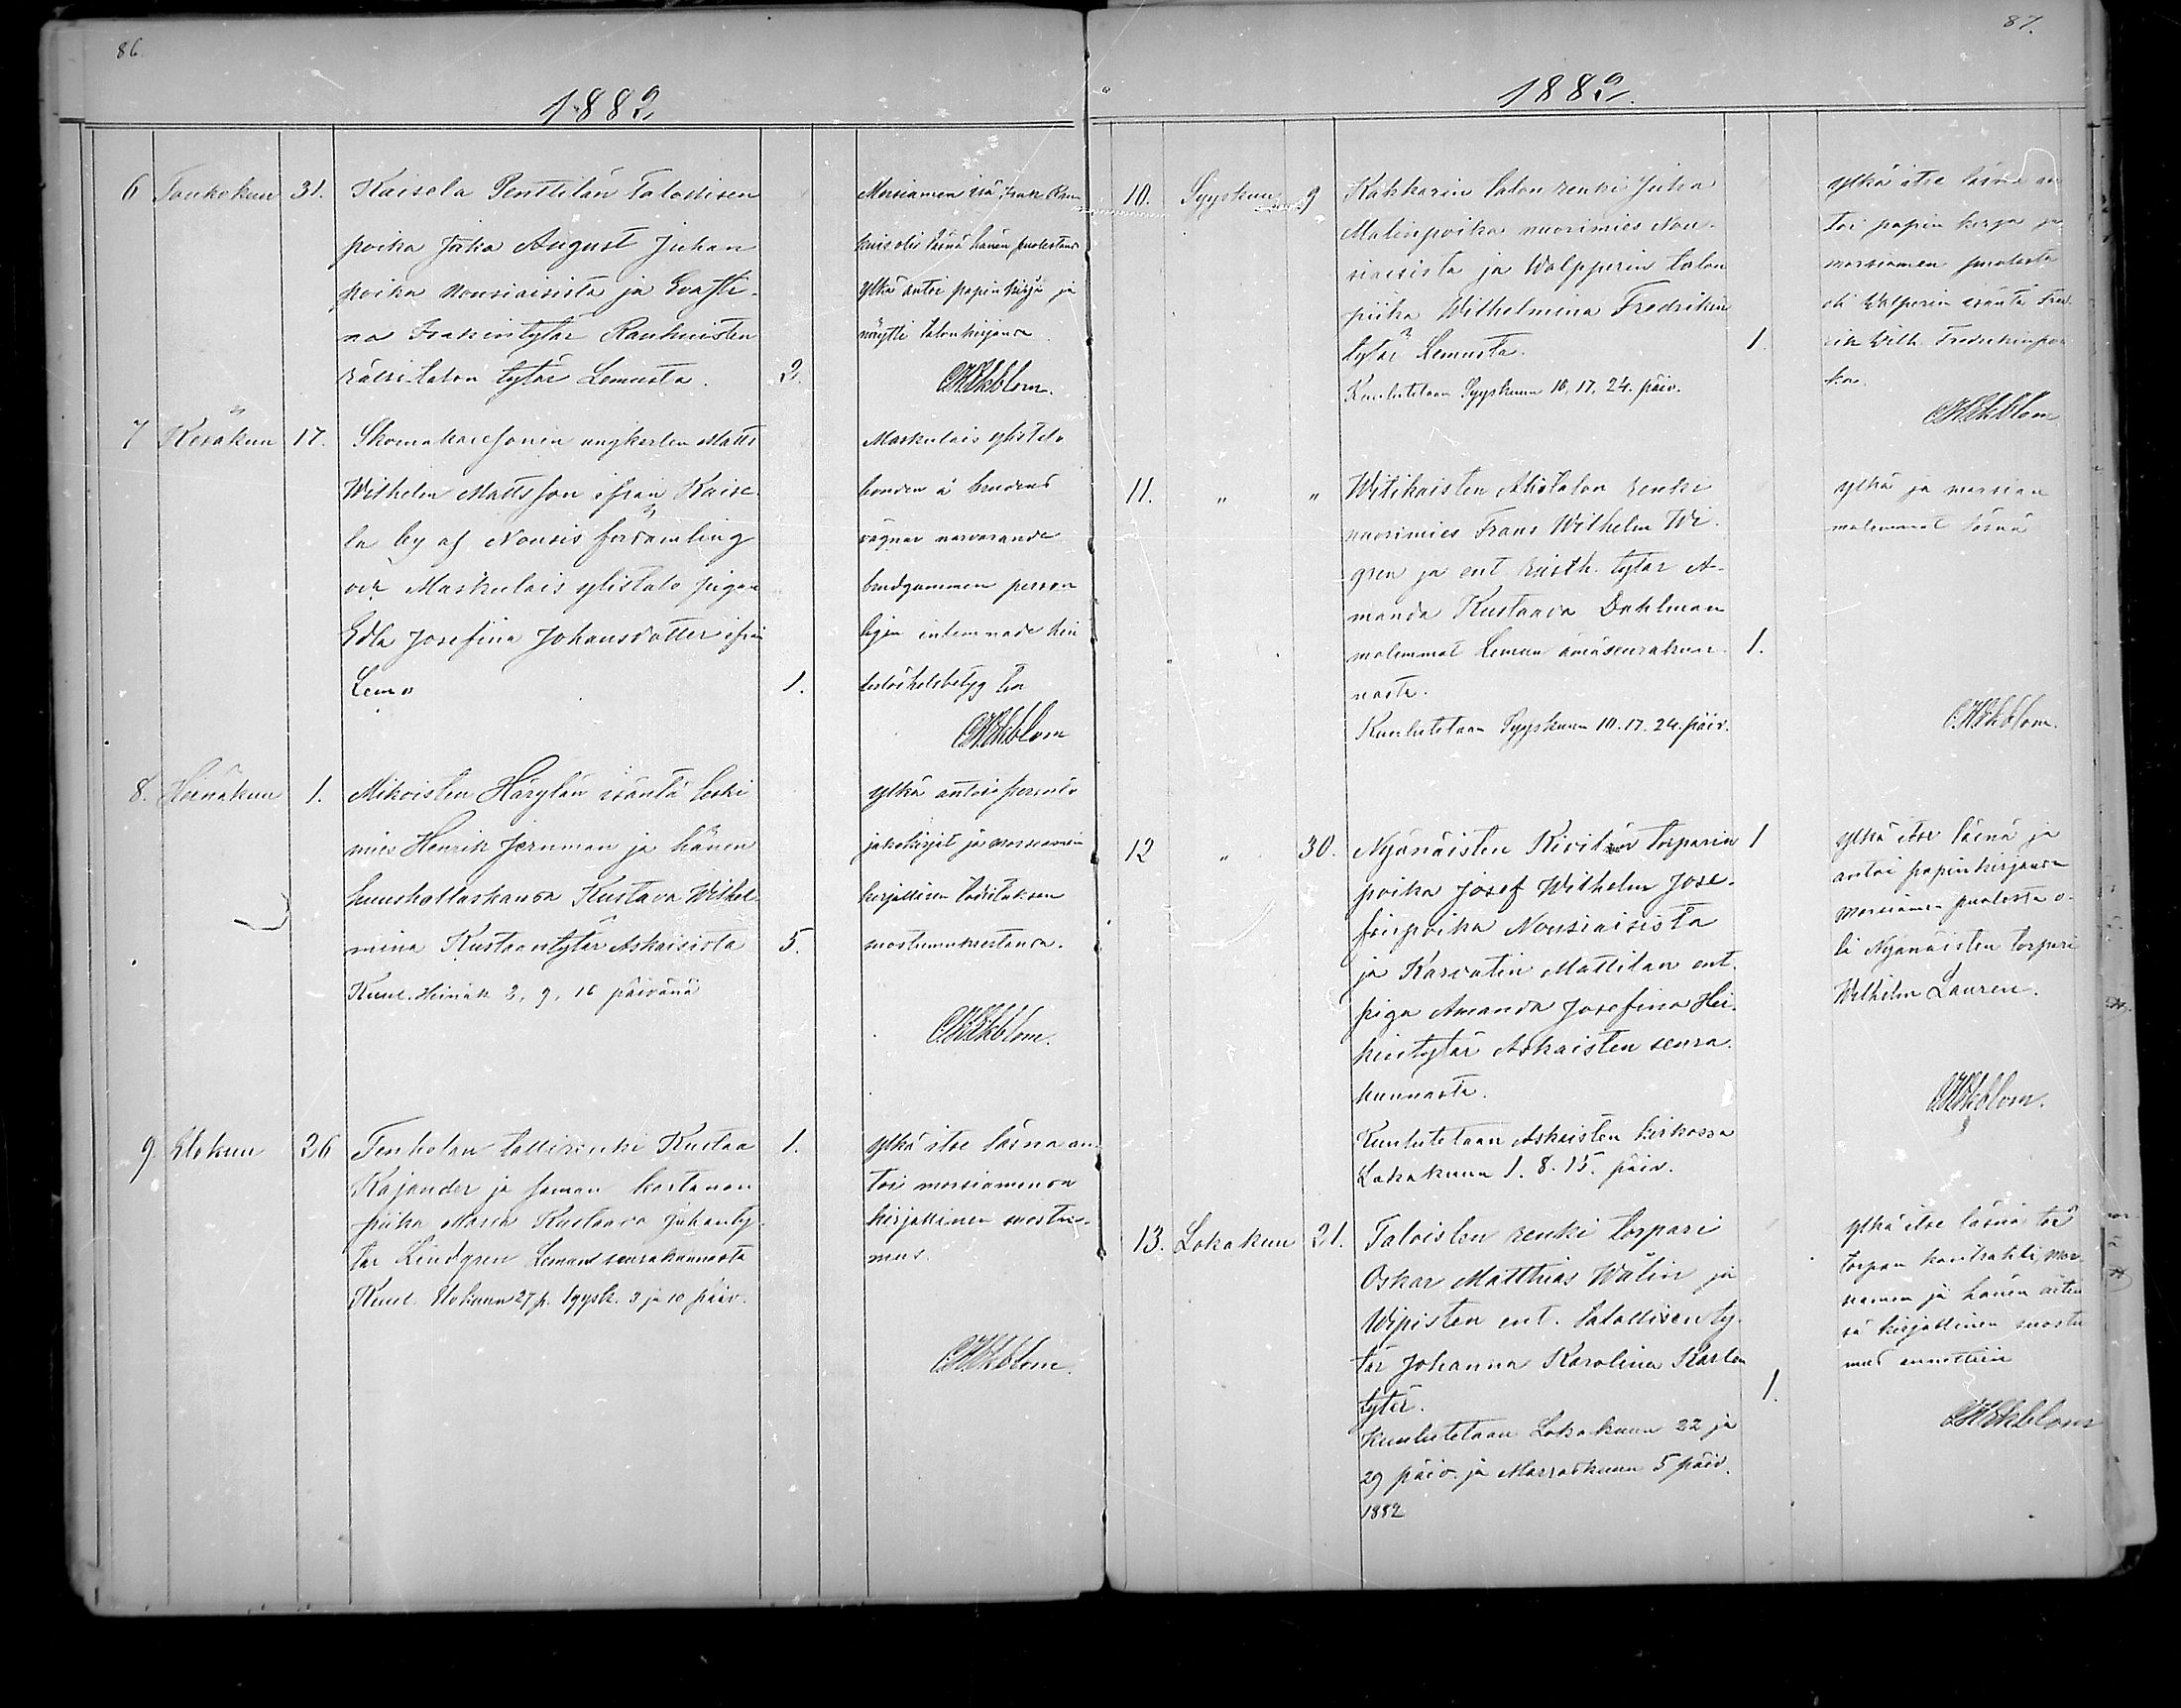 86
1882
6 Toukokun 31. Kaisela Penttilän Talollisen
poika Juha August Juhan
poika Nousiaisista ja Eva Sti-
na Isakintytär Rauhuisten
rälsitalon tytär Lemusta. 2.
Morsiamen isä Isak
oli läsnä hänen puolestansa
Ylkä antoi papin kirja ja
näytti talonkirjansa
CWEkblom.
7 Kesäkun 17. Skomakaresonen ungkarlen Matts
Wilhelm Mattsson ifrån Kaise-
la by af Nousis församling
och Maskulais ylistalo pigan
Edla Josefina Johansdotter ifrån
Lemo 1.
Maskulais ylistalo
bonden å brudens
vägnar närvarande
brudgummen person
ligen inlemnade hin
derlöshetsbetyg
CWEkblom
8. Heinäkun 1. Mikoisten Härylän isäntä leski
mies Henrik Jernman ja hänen
huushollaskansa Kustava Wilhel-
mina Kustaantytär Askaisista 5.
Kuul. Heinäk 2, 9, 16 päivänä
Ylkä antoi perintö
jakokirjat ja morsiamen
kirjallisen todistuksen
suostumuksestansa.
CWEkblom.
9. Elokun 26 Tenholan tallirenki Kustaa 1.
Kajander ja saman kartanon
piika Maria Kustaava Juhanty-
tär Lindgren Lemun seurakunnasta
Kuul. Elokuun 27 p. Syysk. 3 ja 10 päiv.
Ylkä itse läsnä an-
toi morsiamensa
kirjallinen suostu-
mus.
CWEkblom.
87.
1882.
10. Syyskun 9 Kakkarin talon renki Juha
Matinpoika nuorimies Nou-
siaisista ja Walpperin talon
piika Wilhelmina Fredrikin
tytär Lemusta. 1.
Kuulutetaan Syyskuun 10, 17, 24. päiv.
Ylkä itse läsnä an
toi papin kirja ja
morsiamen puolesta
oli Walperin isäntä Fred-
rik Wilh. Fredrikinpoi
ka.
CWEkblom
11. " " Witikaisten Alistalon renki
nuorimies Frans Wilhelm Wi-
gren ja ent. rusth. tytär A-
manda Kustaava Dahlman
molemmat Lemun emäseurakun- 1.
nasta.
Kuulutetaan Syyskuun 10. 17. 24. päiv.
Ylkä ja morsian
molemmat läsnä
CWEkblom.
12 " 30. Nyynäisten torparin 1
poika Josef Wilhelm Jose-
finpoika Nousiaisista
ja Karvatin Mattilan ent.
piga Amanda Josefina Hei-
kintytär Askaisten seura-
kunnasta.
Kuulutetaan Askaisten kirkossa
Lokakuun 1. 8. 15. päiv.
Ylkä itse läsnä ja
antoi papinkirjansa
Morsiamen puolesta o-
li Nyynäisten torpari
Wilhelm Lauren.
CWEkblom.
13. Lokakun 21. Taloisten renki torpari
Oskar Matthias Walin ja
Wipisten ent. talollisen ty-
tär Johanna Karolina Karlon
tytär. 1.
Kuulutetaan Lokakuun 22 ja
29 päiv. ja Marraskuun 5 päiv.
1882
Ylkä itse läsnä toi
torpan kontrahti, mor-
siamen ja hänen äitin
sä kirjallinen suostu
mus annettiin
CWEkblom